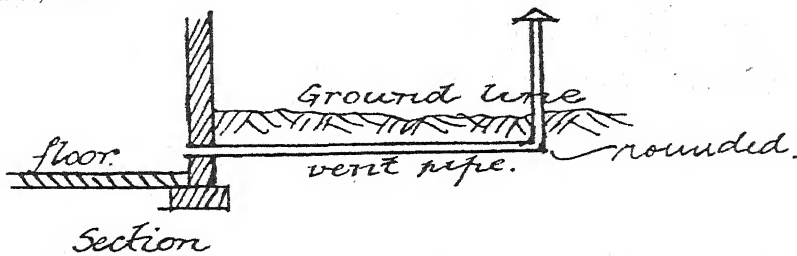 Ground line
floor.
vent pipe.
rounded.
Section